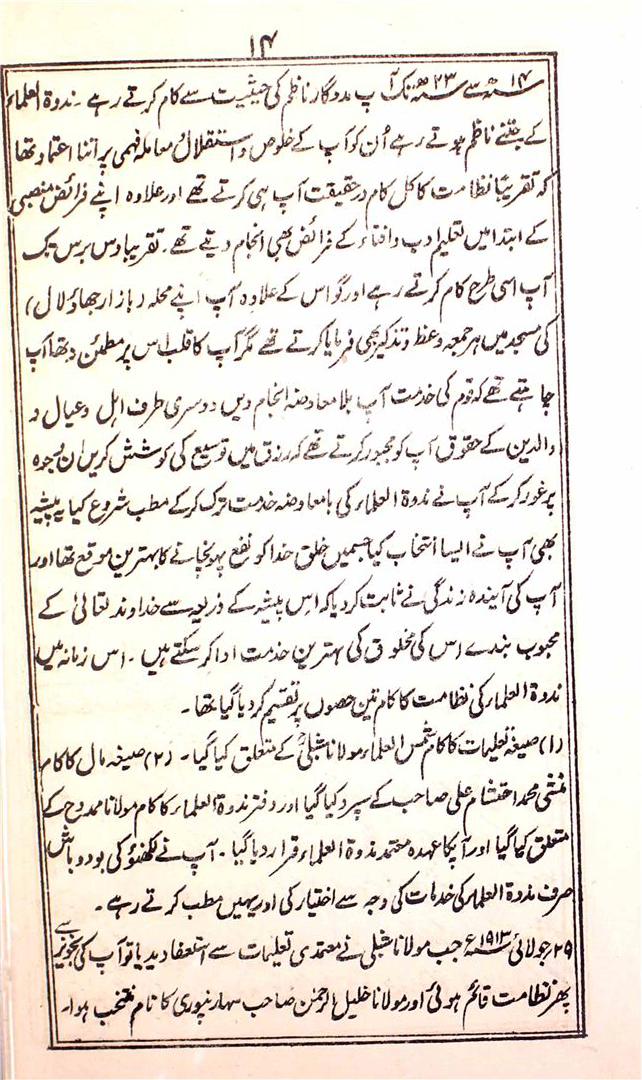 ۱۴
۱۴ھ سے ۲۳ھ تک آپ مددگار ناظم کی حیثیت سے کام کرتے رہے ۔ ندوۃ العلماء
کے جتنے ناظم ہوتے رہے اُن کو آپ کے خلوص و استقلال و معاملہ فہمی پر اتنا اعتماد تھا
کہ تقریباً نظامت کا کل کام درحقیقت آپ ہی کرتے تھے اور علاوہ اپنے فرائض منصبی
کے ابتدا میں تعلیم ادب و افتاء کے فرائض بھی انجام دیتے تھے ۔ تقریبا دس برس تک
آپ اسی طرح کام کرتے رہے اور گو اس کے علاوہ آپ اپنے محلہ (بازار جھاؤ لال)
کی مسجد میں ہر جمعہ وعظ و تذکیر بھی فرمایا کرتے تھے مگر آپ کا قلب اس پر مطمئن نہ تھا آپ
چاہتے تھے کہ قوم کی خدمت آپ بلا معاوضہ انجام دیں دوسری طرف اہل و عیال و
والدین کے حقوق آپ کو مجبور کرتے تھے کہ رزق میں توسیع کی کوشش کریں ان وجوہ
پر غور کر کے آپ نے ندوۃ العلماء کی بامعاوضہ خدمت ترک کر کے مطب شروع کیا یہ پیشہ
بھی آپ نے ایسا انتخاب کیا جسمیں خلق خدا کو نفع پہونچانے کا بہترین موقع تھا اور
آپ کی آیندہ زندگی نے ثابت کردیا کہ اس پیشہ کے ذریعہ سے خداوند تعالیٰ کے
محبوب بندے اس کی مخلوق کی بہترین خدمت ادا کر سکتے ہیں ۔ اس زمانہ میں
ندوۃ العلماء کی نظامت کا کام تین حصوں پر تقسیم کر دیا گیا تھا ۔
(۱) صیغہ تعلیمات کا کام شمس العلماء مولانا شبلیؒ کے متعلق کیا گیا ۔ (۲) صیغہ مال کا کام
منشی محمد احتشام علی صاحب کے سپرد کیا گیا اور دفتر ندوۃ العلماء کا کام مولانا ممدوح کے
متعلق کیا گیا اور آپکا عہدہ معتمد ندوۃ العلماء قرار دیا گیا ۔ آپ نے لکھنؤ کی بود و باش
صرف ندوۃ العلماء کی خدمات کی وجہ سے اختیار کی اور یہیں مطب کرتے رہے ۔
۲۹ جولائی ۱۹۱۳ء جب مولانا شبلی نے معتمدی تعلیمات سے استعفا دیدیا تو آپ کی تجویز سے
پھر نظامت قائم ہوئی اور مولانا خلیل الرحمٰن صاحب سہارنپوری کا نام منتخب ہوا۔